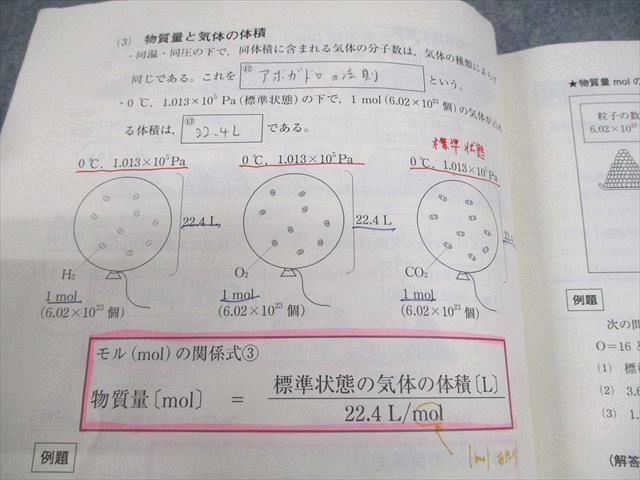 (3) 物質量と気体の体積
・同温・同圧の下で，同体積に含まれる気体の分子数は，気体の種類によらず
同じである。これを ⑫ アボガドロの法則 という。
・0 ℃，1.013×10⁵ Pa (標準状態) の下で，1 mol (6.02×10²³ 個) の気体が占め
る体積は，⑬ 22.4L である。
標準状態
0 ℃，1.013×10⁵Pa 0 ℃，1.013×10⁵Pa 0 ℃，1.013×10⁵Pa
22.4 L 22.4 L
H₂ O₂ CO₂
1 mol 1 mol 1 mol
(6.02×10²³ 個) (6.02×10²³ 個) (6.02×10²³ 個)
モル(mol)の関係式③
物質量〔mol〕 = 標準状態の気体の体積〔L〕
22.4 L/mol
1mol あたり
例題
★物質量 mol の
粒子の数
6.02×10²³
例題
次の問
O=16 と
(1) 標準
(2) 3.6
(3) 1.
(解答